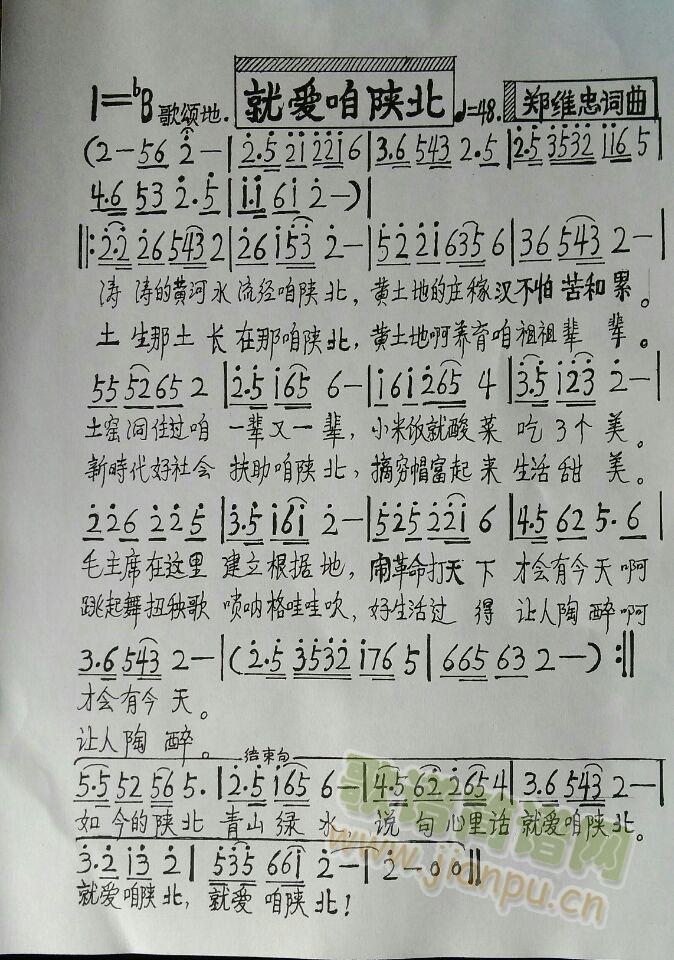 就爱咱陕北
1=♭B 歌颂地. ♩=48. 郑维忠词曲
(2— 56 2— | 2.5 21 2216 | 3.6 543 2.5 | 2.5 3532 116 5
4.6 53 2.5 | 1.1 61 2—) |
‖: 2.2 26 543 2 | 26 153 2— | 52 21 635 6 | 36 543 2— |
涛 涛的黄河水 流经咱陕北, 黄土地的庄稼汉不怕苦和累。
土 生那土长 在那咱陕北, 黄土地啊养育咱祖祖辈 辈。
55 52 65 2 | 2.5 165 6— | 161 265 4 | 3.5 123 2— |
土窑洞住过咱 一辈又一辈, 小米饭就酸菜 吃了个美。
新時代好社会 扶助咱陕北, 摘穷帽富起来 生活甜 美。
226 225 | 3.5 161 2— | 525 221 6 | 4.5 62 5.6 |
毛主席在这里 建立根据地, 闹革命打天下 才会有今天啊
跳起舞扭秧歌 唢呐格哇哇吹, 好生活过 得 让人陶醉啊
3.6 543 2— | (2.5 3532 176 5 | 665 63 2—) :‖
才会有今 天。
让人陶 醉。
结束句
5.5 52 56 5. | 2.5 165 6— | 4.5 62 265 4 | 3.6 543 2— |
如 今的陕北 青山绿 水 说句心里话 就爱咱陕北。
3.2 13 2 | 535 661 2— | 2— 0 0 ‖
就爱咱陕北, 就爱 咱陕 北!
www.jianpu.cn